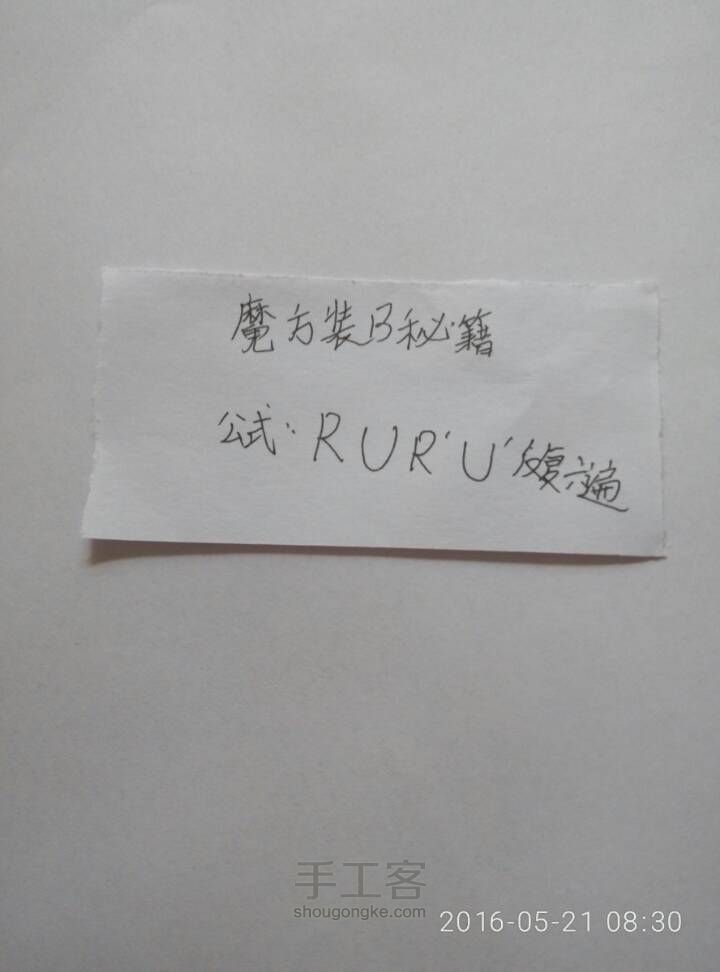 魔方装B秘籍
公式：R U R' U' 反复六遍
手工客
shougongke.com
2016-05-21 08:30